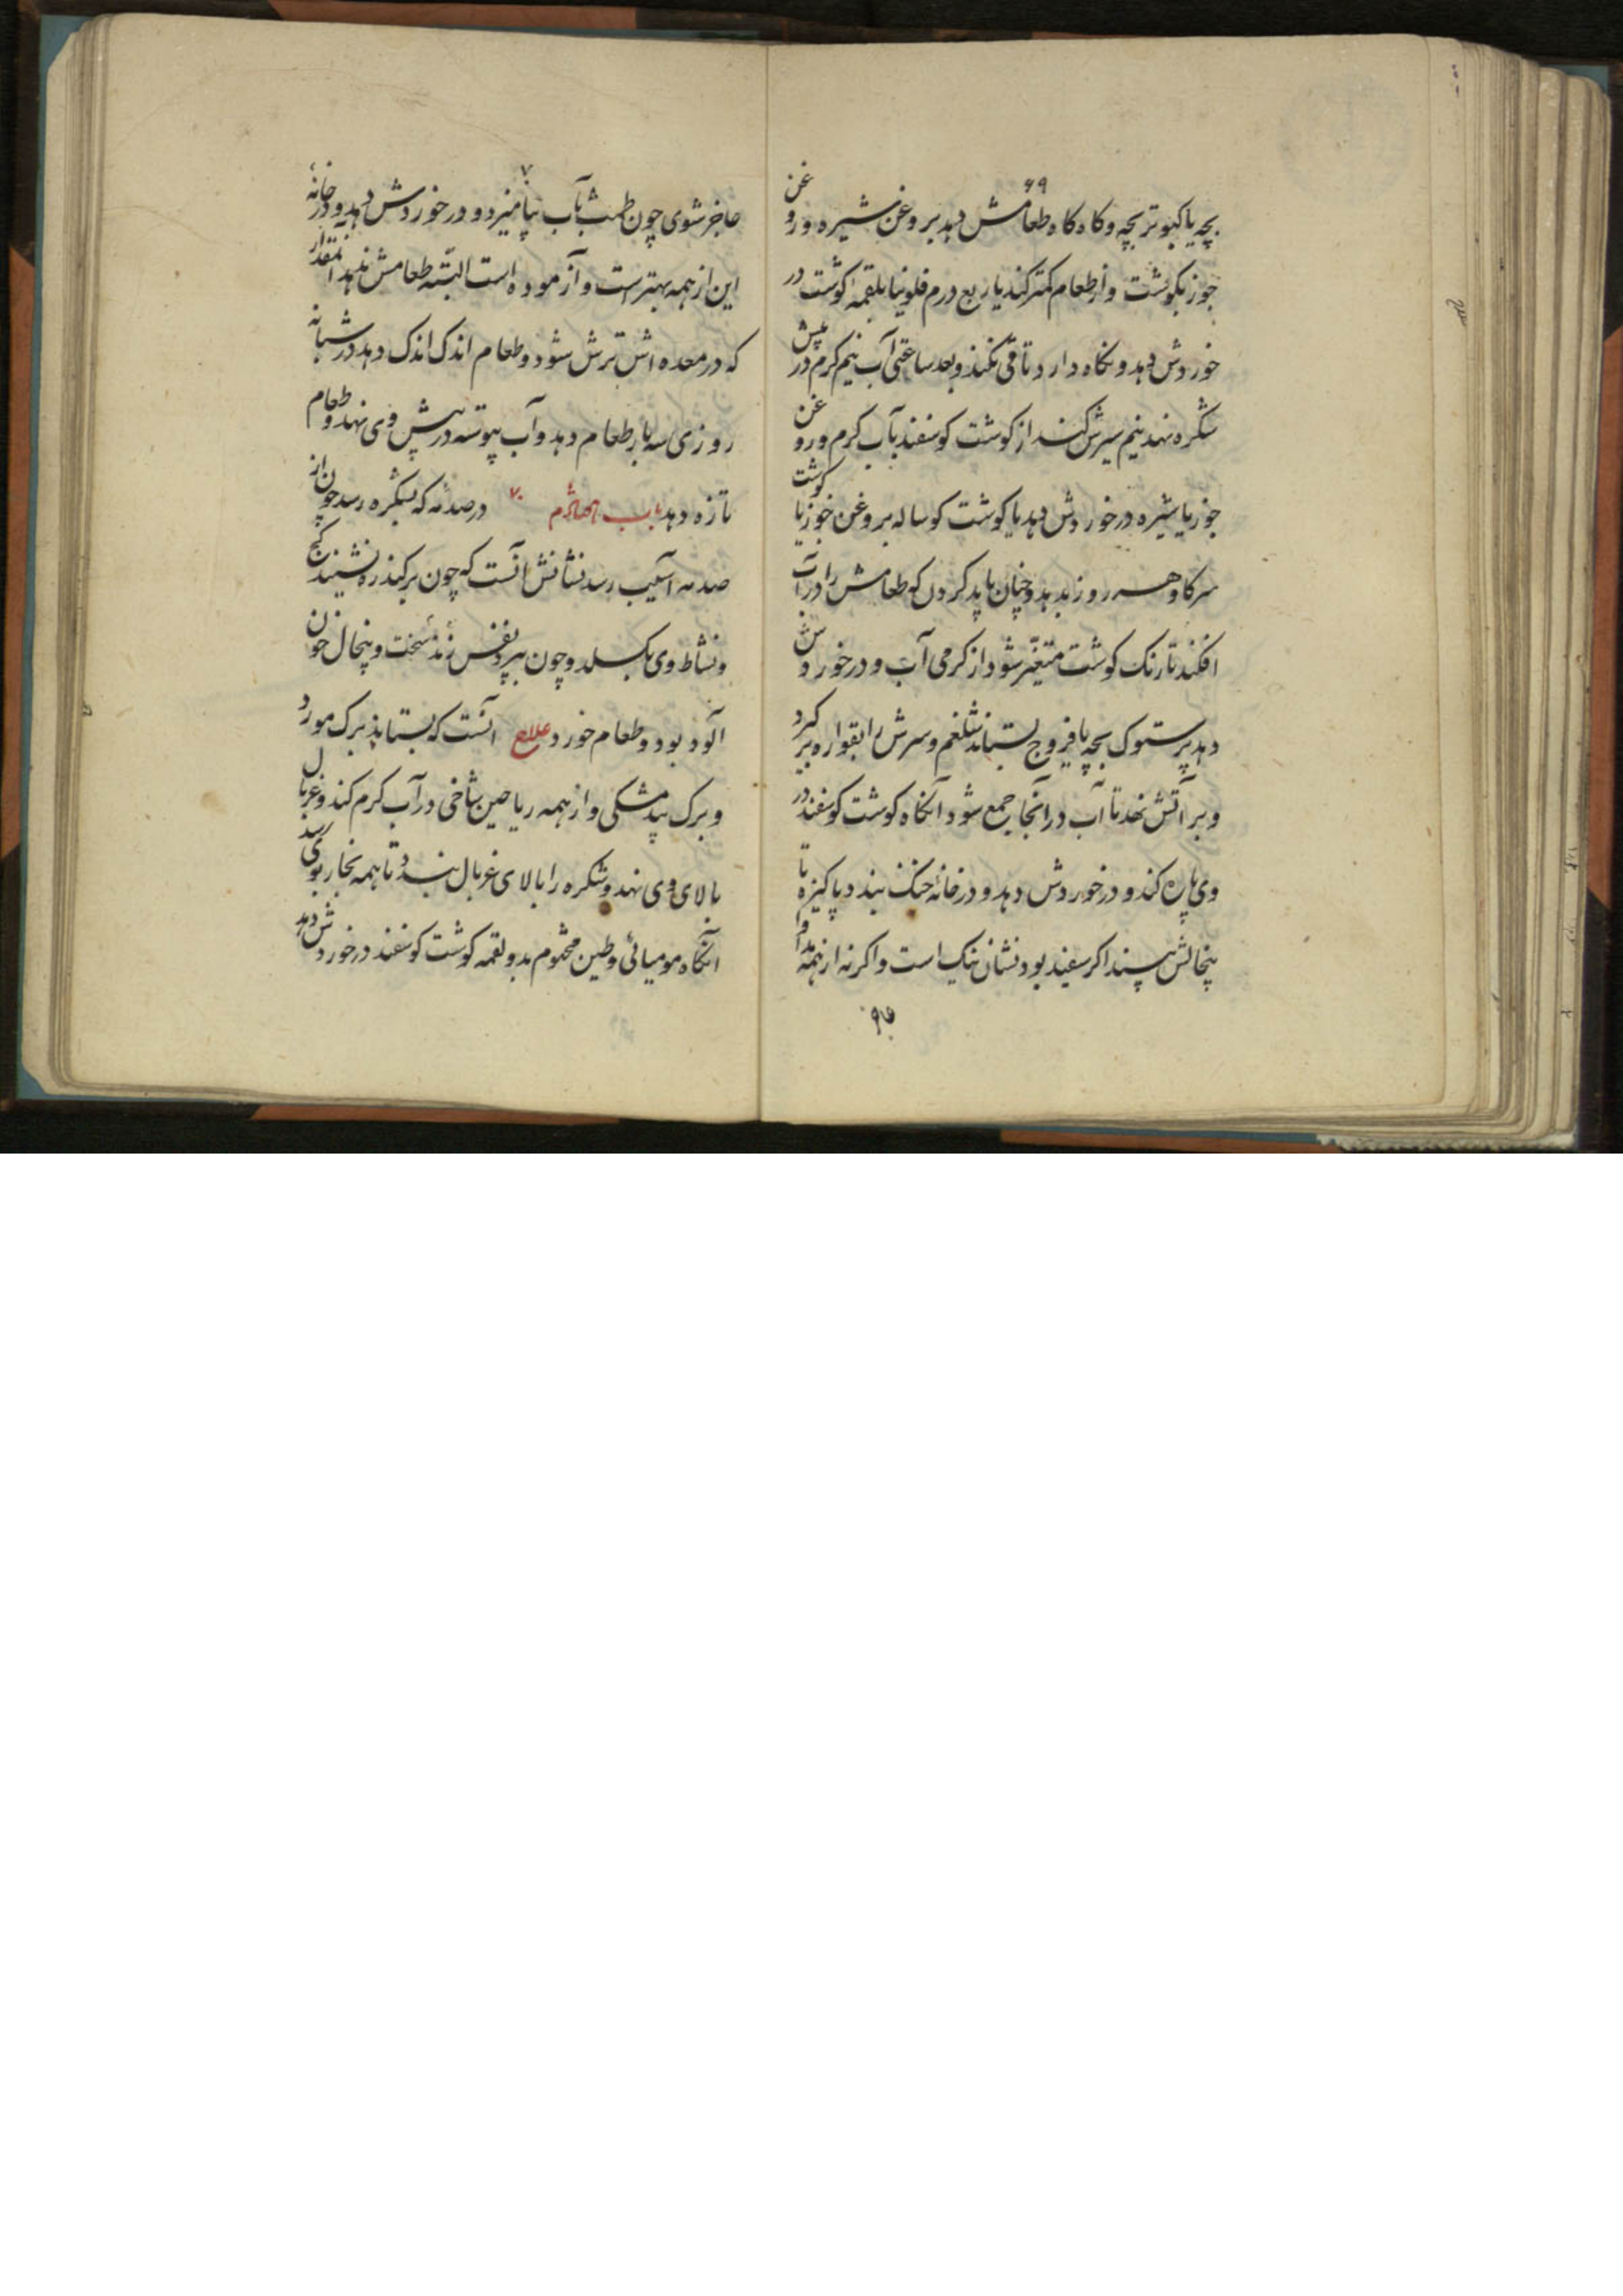 ۶۹
بچه یا کبوتر بچه و کاه کاه طعامش دهد بروغن شیره و روغن
جوز بکوشت و از طعام کمتر کند یا ربع درم فلونیا بلقمه کوشت در
خوردش دهد و نکاه دارد تا قی نکند و بعد ساعتی آب نیم کرم در پیش
شکره نهد نیم سیرش کند از کوشت کوسفند بآب کرم و روغن
جوز یا شیره در خوردش دهد یا کوشت کوساله بروغن جوز یا کوشت
سر کاو هر روز بدهد و چنان باید کردن که طعامش را در آب
افکند تا رنک کوشت متغیّر شود از کرمی آب و در خوردش
دهد پرستوک بچه یا فروج بستاند شلغم و سرش را بقواره بر کیرد
و بر آتش نهد تا آب در آنجا جمع شود آنکاه کوشت کوسفند در
وی پاره کند و در خوردش دهد و در خانه خنک بندد پاکیزه تا
پنجالش ببیند اکر سفید بود نشان نیک است و اکر نه از همه مداوا
۷۰
عاجز شوی چون طمث بآب بیامیزد و در خوردش دهد و در خانهٔ
این از همه بهتر است و آزموده است البتّه طعامش ندهد آنمقدار
که در معده اش ترش شود و طعام اندک اندک دهد در شبانه
روزی سه بار طعام دهد و آب پیوسته در پیش وی نهد و طعام
تازه دهد باب ۷۰ در صدمه که بشکره رسد چون از
صدمه آسیب رسد نشانش آنست که چون بر کندره نشیند کج
و نشاط وی بکسلد و چون بپرد نفس زند سخت و پنجال خون
آلود بود و طعام خورد علاج آنست که بستاند برک مورد
و برک بید مشکی و از همه ریاحین شاخی در آب کرم کند و غربال
بالای وی نهد و شکره را بالای غربال بندد تا همه بخار بوی رسد
آنکاه مومیائی و طین مختوم بدو لقمه کوشت کوسفند در خوردش دهد